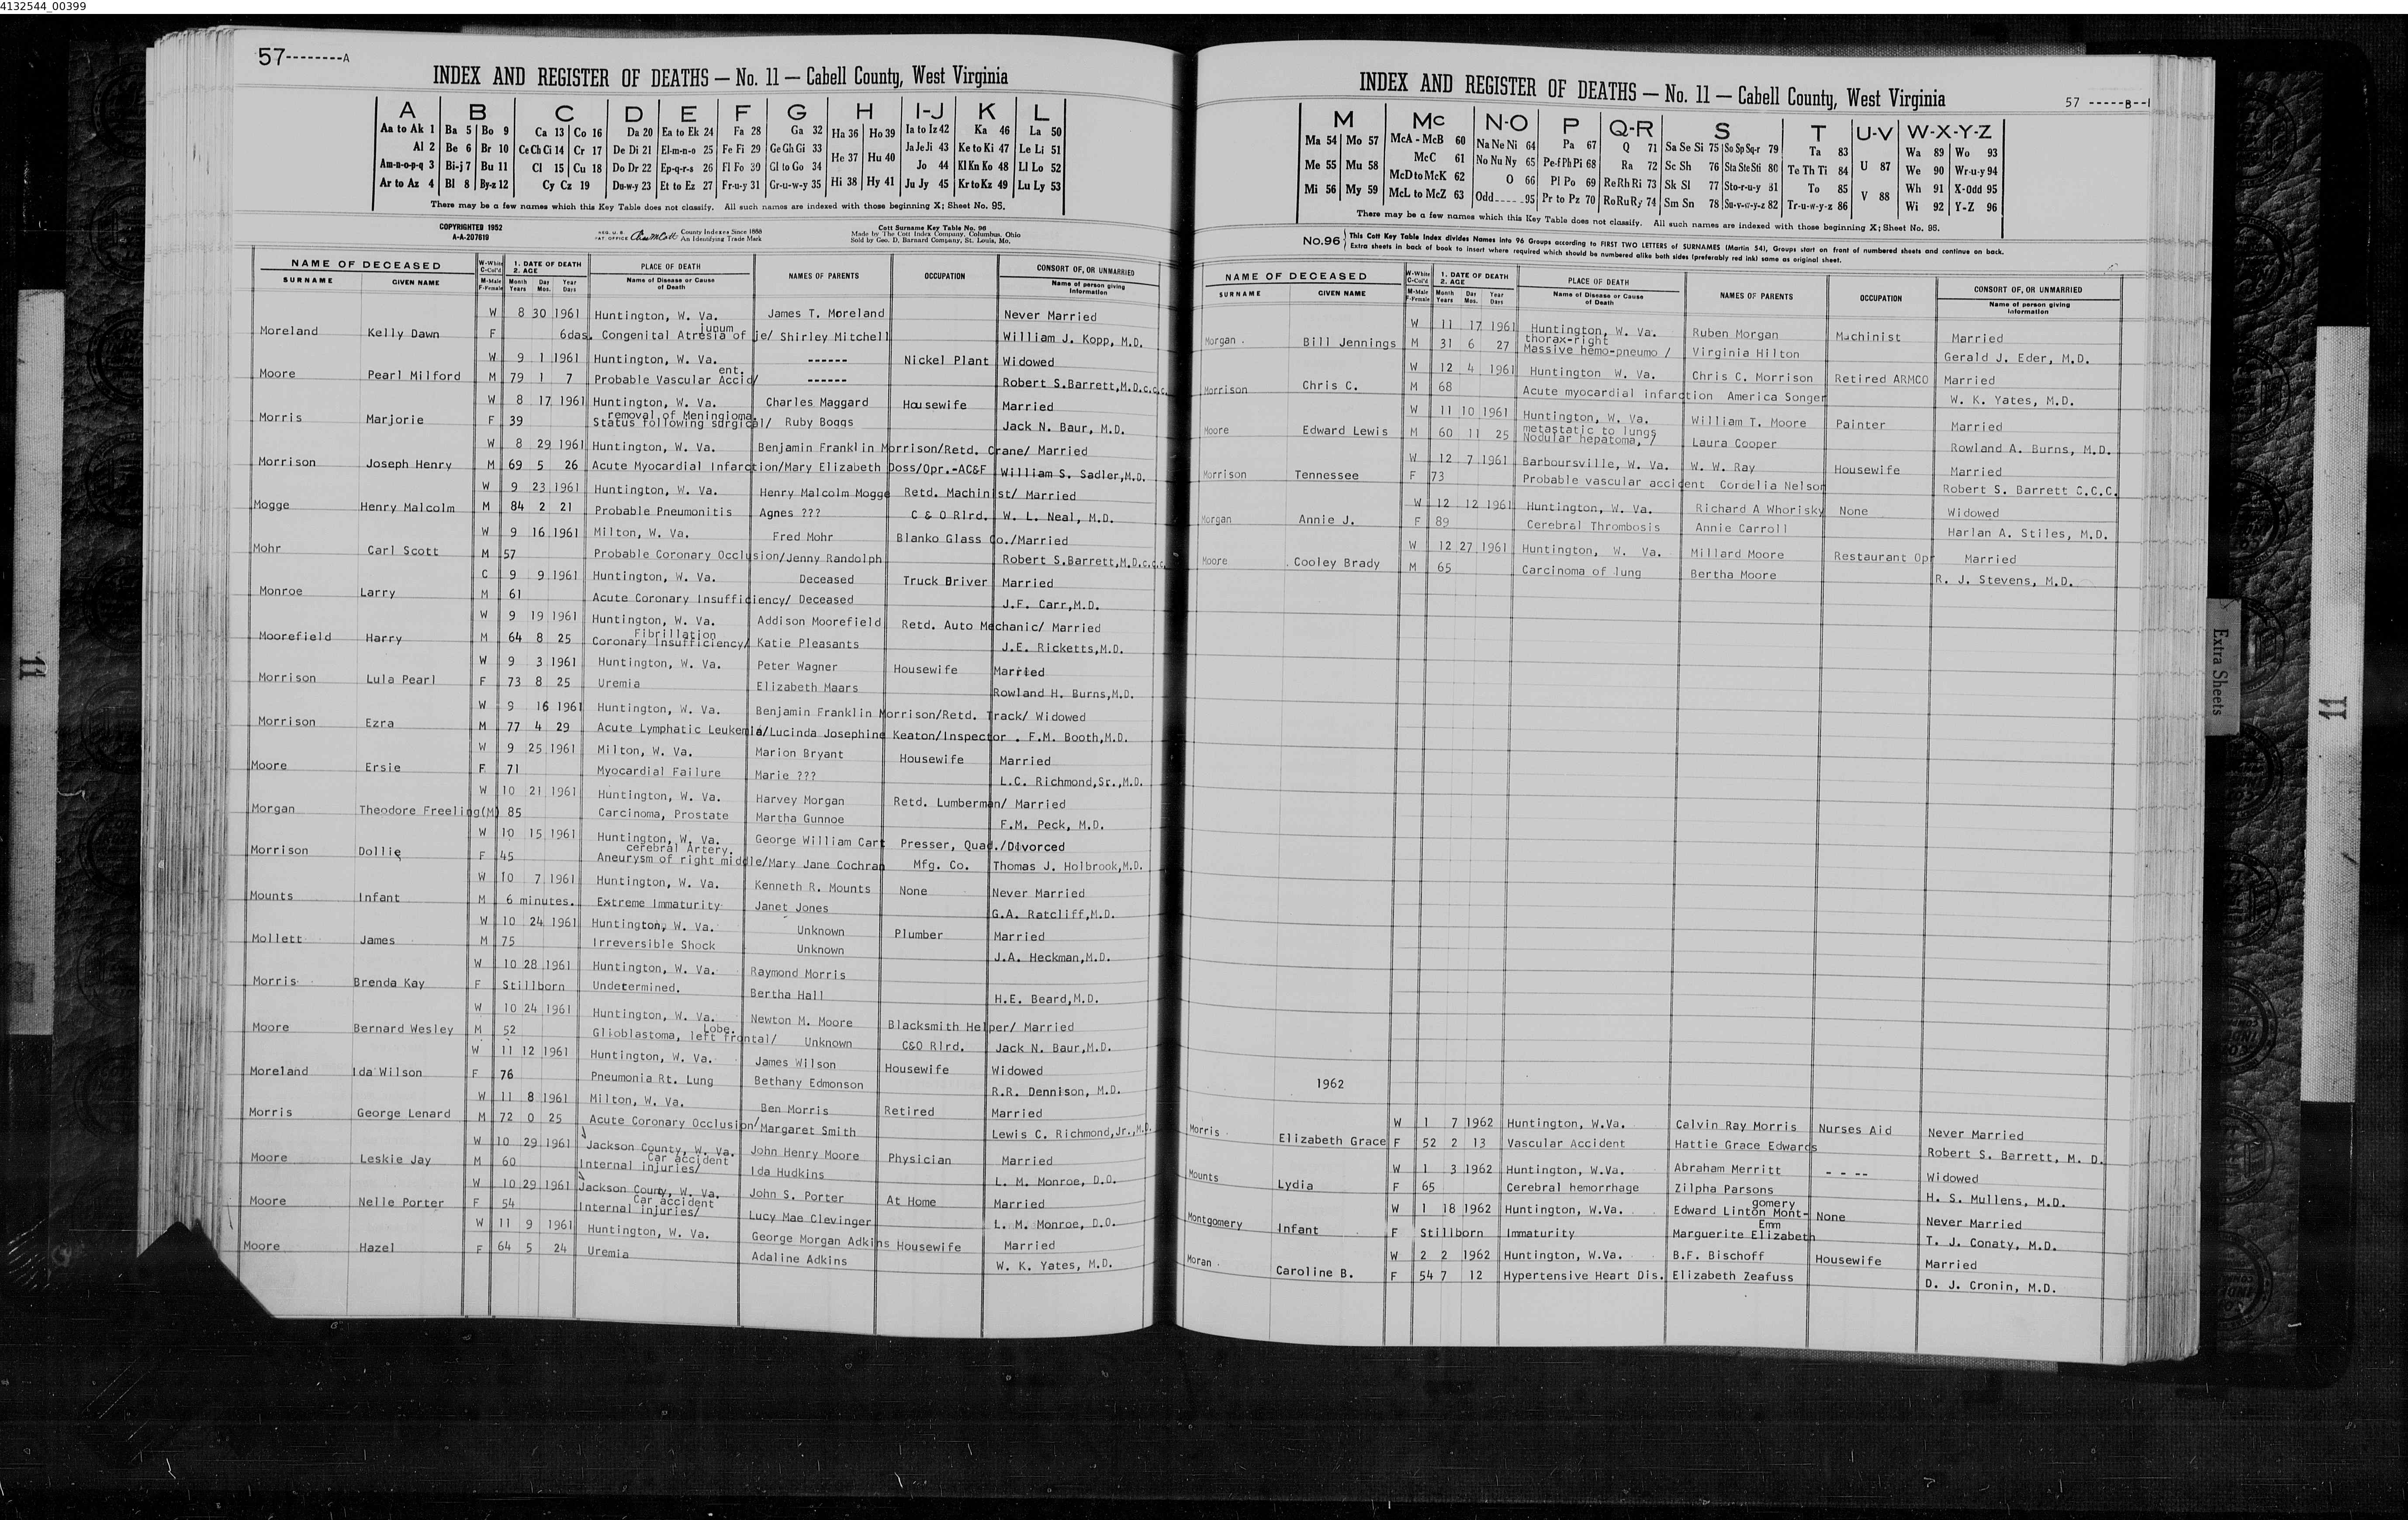 4132544_00399
57--------A
INDEX AND REGISTER OF DEATHS — No. 11 — Cabell County, West Virginia
A B C D E F G H I-J K L
Aa to Ak 1 Ba 5 Bo 9 Ca 13 Co 16 Da 20 Ea to Ek 24 Fa 28 Ga 32 Ha 36 Ho 39 Ia to Iz 42 Ka 46 La 50
Al 2 Be 6 Br 10 Ce Ch Ci 14 Cr 17 De Di 21 El-m-n-o 25 Fe Fi 29 Ge Gh Gi 33 He 37 Hu 40 Ja Je Ji 43 Ke to Ki 47 Le Li 51
Am-n-o-p-q 3 Bi-j 7 Bu 11 Cl 15 Cu 18 Do Dr 22 Ep-q-r-s 26 Fl Fo 30 Gl to Go 34 Jo 44 Kl Kn Ko 48 Ll Lo 52
Ar to Az 4 Bl 8 By-z 12 Cy Cz 19 Du-w-y 23 Et to Ez 27 Fr-u-y 31 Gr-u-w-y 35 Hi 38 Hy 41 Ju Jy 45 Kr to Kz 49 Lu Ly 53
There may be a few names which this Key Table does not classify. All such names are indexed with those beginning X; Sheet No. 95.
COPYRIGHTED 1952
A-A-207619
REG. U. S. PAT OFFICE County Indexes Since 1888 An Identifying Trade Mark
Cott Surname Key Table No. 96
Made by The Cott Index Company, Columbus, Ohio
Sold by Geo. D. Barnard Company, St. Louis, Mo.
NAME OF DECEASED W-White C-Col'd 1. DATE OF DEATH 2. AGE PLACE OF DEATH NAMES OF PARENTS OCCUPATION CONSORT OF, OR UNMARRIED
SURNAME GIVEN NAME M-Male F-Female Month Years Day Mos. Year Days Name of Disease or Cause of Death Name of person giving Information
W 8 30 1961 Huntington, W. Va. James T. Moreland Never Married
Moreland Kelly Dawn F 6das. Congenital Atresia of je/junum Shirley Mitchell William J. Kopp, M.D.
W 9 1 1961 Huntington, W. Va. ------ Nickel Plant Widowed
Moore Pearl Milford M 79 1 7 Probable Vascular Accid/ent. ------ Robert S.Barrett,M.D.c.c.c.
W 8 17 1961 Huntington, W. Va. Charles Maggard Housewife Married
Morris Marjorie F 39 Status following surgical/ removal of Meningioma. Ruby Boggs Jack N. Baur, M.D.
W 8 29 1961 Huntington, W. Va. Benjamin Franklin Morrison/Retd. Crane/ Married
Morrison Joseph Henry M 69 5 26 Acute Myocardial Infarction/Mary Elizabeth Doss/Opr.-AC&F William S. Sadler,M.D.
W 9 23 1961 Huntington, W. Va. Henry Malcolm Mogge Retd. Machinist/ Married
Mogge Henry Malcolm M 84 2 21 Probable Pneumonitis Agnes ??? C & O Rlrd. W. L. Neal, M.D.
W 9 16 1961 Milton, W. Va. Fred Mohr Blanko Glass Co./Married
Mohr Carl Scott M 57 Probable Coronary Occlusion/Jenny Randolph Robert S.Barrett,M.D.c.c.c.
C 9 9 1961 Huntington, W. Va. Deceased Truck Driver Married
Monroe Larry M 61 Acute Coronary Insufficiency/ Deceased J.F. Carr,M.D.
W 9 19 1961 Huntington, W. Va. Addison Moorefield Retd. Auto Mechanic/ Married
Moorefield Harry M 64 8 25 Coronary Insufficiency/ Fibrillation Katie Pleasants J.E. Ricketts,M.D.
W 9 3 1961 Huntington, W. Va. Peter Wagner Housewife Married
Morrison Lula Pearl F 73 8 25 Uremia Elizabeth Maars Rowland H. Burns,M.D.
W 9 16 1961 Huntington, W. Va. Benjamin Franklin Morrison/Retd. Track/ Widowed
Morrison Ezra M 77 4 29 Acute Lymphatic Leukemia/Lucinda Josephine Keaton/Inspector . F.M. Booth,M.D.
W 9 25 1961 Milton, W. Va. Marion Bryant Housewife Married
Moore Ersie F 71 Myocardial Failure Marie ??? L.C. Richmond,Sr.,M.D.
W 10 21 1961 Huntington, W. Va. Harvey Morgan Retd. Lumberman/ Married
Morgan Theodore Freeling(M) 85 Carcinoma, Prostate Martha Gunnoe F.M. Peck, M.D.
W 10 15 1961 Huntington, W. Va. George William Cart Presser, Quad./Divorced
Morrison Dollie F 45 Aneurysm of right middle/ cerebral Artery. Mary Jane Cochran Mfg. Co. Thomas J. Holbrook,M.D.
W 10 7 1961 Huntington, W. Va. Kenneth R. Mounts None Never Married
Mounts Infant M 6 minutes. Extreme Immaturity Janet Jones G.A. Ratcliff,M.D.
W 10 24 1961 Huntington, W. Va. Unknown Plumber Married
Mollett James M 75 Irreversible Shock Unknown J.A. Heckman,M.D.
W 10 28 1961 Huntington, W. Va. Raymond Morris
Morris Brenda Kay F Stillborn Undetermined. Bertha Hall H.E. Beard,M.D.
W 10 24 1961 Huntington, W. Va. Newton M. Moore Blacksmith Helper/ Married
Moore Bernard Wesley M 52 Glioblastoma, left frontal/ Lobe. Unknown C&O Rlrd. Jack N. Baur,M.D.
W 11 12 1961 Huntington, W. Va. James Wilson Housewife Widowed
Moreland Ida Wilson F 76 Pneumonia Rt. Lung Bethany Edmonson R.R. Dennison, M.D.
W 11 8 1961 Milton, W. Va. Ben Morris Retired Married
Morris George Lenard M 72 0 25 Acute Coronary Occlusion/Margaret Smith Lewis C. Richmond,Jr.,M.D.
W 10 29 1961 Jackson County, W. Va. John Henry Moore Physician Married
Moore Leskie Jay M 60 Internal injuries/ Car accident Ida Hudkins L. M. Monroe, D.O.
W 10 29 1961 Jackson County, W. Va. John S. Porter At Home Married
Moore Nelle Porter F 54 Internal injuries/ Car accident Lucy Mae Clevinger L. M. Monroe, D.O.
W 11 9 1961 Huntington, W. Va. George Morgan Adkins Housewife Married
Moore Hazel F 64 5 24 Uremia Adaline Adkins W. K. Yates, M.D.
57 -----B--
INDEX AND REGISTER OF DEATHS — No. 11 — Cabell County, West Virginia
M Mc N-O P Q-R S T U-V W-X-Y-Z
Ma 54 Mo 57 McA - McB 60 Na Ne Ni 64 Pa 67 Q 71 Sa Se Si 75 So Sp Sq-r 79 Ta 83 Wa 89 Wo 93
Me 55 Mu 58 McC 61 No Nu Ny 65 Pe-f Ph Pi 68 Ra 72 Sc Sh 76 Sta Ste Sti 80 Te Th Ti 84 U 87 We 90 Wr-u-y 94
McD to McK 62 O 66 Pl Po 69 Re Rh Ri 73 Sk Sl 77 Sto-r-u-y 81 To 85 Wh 91 X-Odd 95
Mi 56 My 59 McL to McZ 63 Odd-----95 Pr to Pz 70 Ro Ru Ry 74 Sm Sn 78 Su-v-w-y-z 82 Tr-u-w-y-z 86 V 88 Wi 92 Y-Z 96
There may be a few names which this Key Table does not classify. All such names are indexed with those beginning X; Sheet No. 95.
No.96 This Cott Key Table Index divides Names into 96 Groups according to FIRST TWO LETTERS of SURNAMES (Martin 54), Groups start on front of numbered sheets and continue on back.
Extra sheets in back of book to insert where required which should be numbered alike both sides (preferably red ink) same as original sheet.
NAME OF DECEASED W-White C-Col'd 1. DATE OF DEATH 2. AGE PLACE OF DEATH NAMES OF PARENTS OCCUPATION CONSORT OF, OR UNMARRIED
SURNAME GIVEN NAME M-Male F-Female Month Years Day Mos. Year Days Name of Disease or Cause of Death Name of person giving Information
W 11 17 1961 Huntington, W. Va. Ruben Morgan Machinist Married
Morgan Bill Jennings M 31 6 27 Massive hemo-pneumo / thorax-right Virginia Hilton Gerald J. Eder, M.D.
W 12 4 1961 Huntington W. Va. Chris C. Morrison Retired ARMCO Married
Morrison Chris C. M 68 Acute myocardial infarction America Songer W. K. Yates, M.D.
W 11 10 1961 Huntington, W. Va. William T. Moore Painter Married
Moore Edward Lewis M 60 11 25 Nodular hepatoma, / metastatic to lungs Laura Cooper Rowland A. Burns, M.D.
W 12 7 1961 Barboursville, W. Va. W. W. Ray Housewife Married
Morrison Tennessee F 73 Probable vascular accident Cordelia Nelson Robert S. Barrett C.C.C.
W 12 12 1961 Huntington, W. Va. Richard A Whorisky None Widowed
Morgan Annie J. F 89 Cerebral Thrombosis Annie Carroll Harlan A. Stiles, M.D.
W 12 27 1961 Huntington, W. Va. Millard Moore Restaurant Opr Married
Moore Cooley Brady M 65 Carcinoma of lung Bertha Moore R. J. Stevens, M.D.
1962
W 1 7 1962 Huntington, W.Va. Calvin Ray Morris Nurses Aid Never Married
Morris Elizabeth Grace F 52 2 13 Vascular Accident Hattie Grace Edwards Robert S. Barrett, M. D.
W 1 3 1962 Huntington, W.Va. Abraham Merritt - - -- Widowed
Mounts Lydia F 65 Cerebral hemorrhage Zilpha Parsons H. S. Mullens, M.D.
W 1 18 1962 Huntington, W.Va. Edward Linton Mont-gomery None Never Married
Montgomery Infant F Stillborn Immaturity Marguerite Elizabeth Emm T. J. Conaty, M.D.
W 2 2 1962 Huntington, W.Va. B.F. Bischoff Housewife Married
Moran Caroline B. F 54 7 12 Hypertensive Heart Dis. Elizabeth Zeafuss D. J. Cronin, M.D.
Extra Sheets
11
11